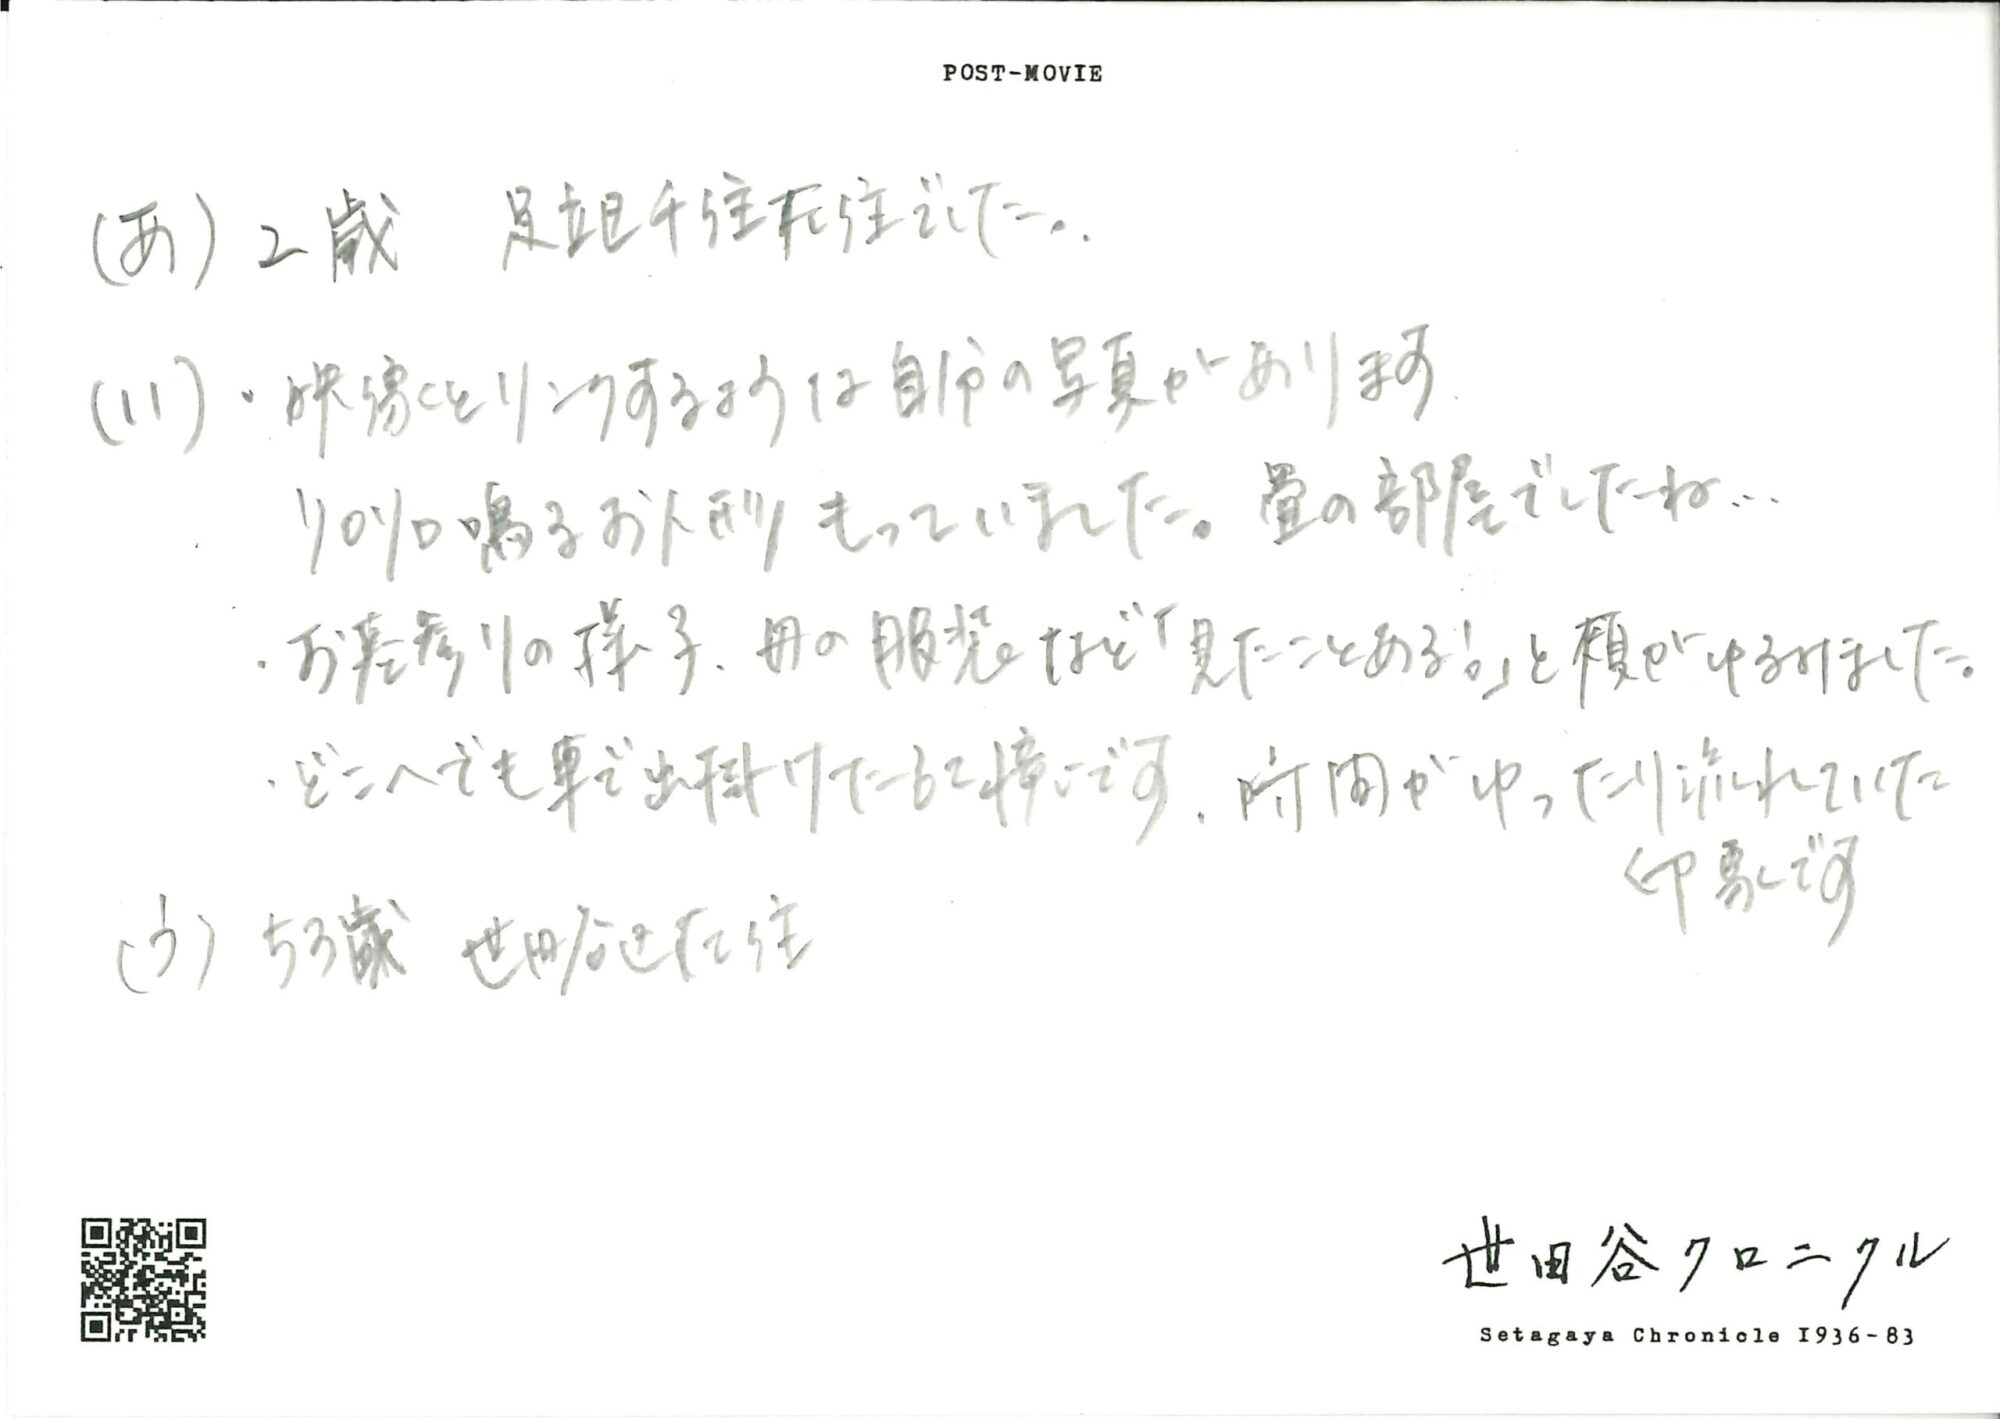 POST-MOVIE
(あ) 2歳 足立区千住在住でした。
(い)・映像とリンクするような自分の写真があります
リロリロ鳴るお人形もっていました。畳の部屋でしたね…
・お墓参りの様子、母の服装など「見たことある!」と頬がゆるみました。
・どこへでも車で出掛けた
です、時間がゆったり流れていた
印象です
(う) 53歳 世田谷区在住
世田谷クロニクル
Setagaya Chronicle 1936-83